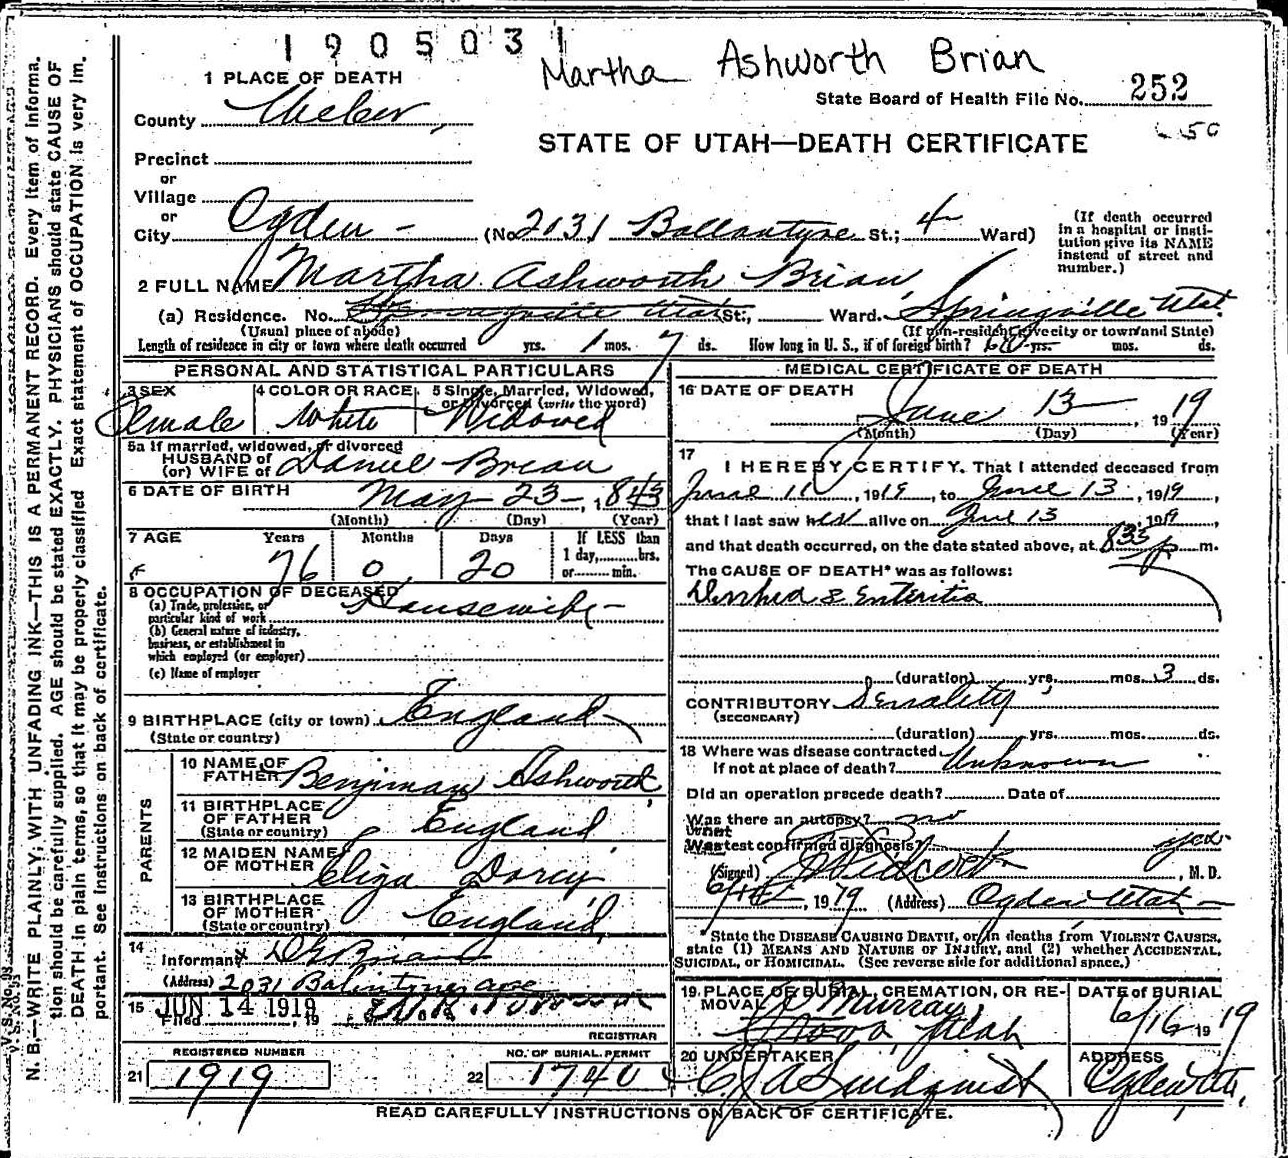 1905031
Martha Ashworth Brian
State Board of Health File No. 252
1 PLACE OF DEATH
County Weber
STATE OF UTAH—DEATH CERTIFICATE
Precinct
or
Village
or
City Ogden - (No 2031 Ballantyne St.; 4 Ward)
(If death occurred in a hospital or insti-
tution give its NAME
instead of street and
number.)
2 FULL NAME Martha Ashworth Brian
(a) Residence. No. St., Ward. Springville Utah.
(Usual place of abode) (If non-resident give city or town and State)
Length of residence in city or town where death occurred yrs. 1 mos. 7 ds. How long in U. S., if of foreign birth? yrs. mos. ds.
PERSONAL AND STATISTICAL PARTICULARS
3 SEX Female
4 COLOR OR RACE White
5 Single, Married, Widowed, or Divorced (write the word) Widowed
5a If married, widowed, or divorced
HUSBAND of
(or) WIFE of Daniel Brian
6 DATE OF BIRTH May 23-, 1843
(Month) (Day) (Year)
7 AGE Years Months Days If LESS than
1 day,......hrs.
or......min.
76 0 20
8 OCCUPATION OF DECEASED
(a) Trade, profession, or
particular kind of work Housewife-
(b) General nature of industry,
business, or establishment in
which employed (or employer)
(c) Name of employer
9 BIRTHPLACE (city or town) England
(State or country)
PARENTS
10 NAME OF
FATHER Benjiman Ashworth
11 BIRTHPLACE
OF FATHER
(State or country) England
12 MAIDEN NAME
OF MOTHER Eliza Dorcy
13 BIRTHPLACE
OF MOTHER
(State or country) England
14
Informant
(Address) 2031 Balentyne ave
15 JUN 14 1919
Filed , 19
REGISTRAR
REGISTERED NUMBER
21 1919
NO. OF BURIAL PERMIT
22 1740
MEDICAL CERTIFICATE OF DEATH
16 DATE OF DEATH June 13, 1919
(Month) (Day) (Year)
17
I HEREBY CERTIFY. That I attended deceased from
June 11, 1919, to June 13, 1919,
that I last saw her alive on June 13, 1919,
and that death occurred, on the date stated above, at 8 35 p m.
The CAUSE OF DEATH* was as follows:
& Enteritis
(duration) yrs. mos. 3 ds.
CONTRIBUTORY Senality
(SECONDARY)
(duration) yrs. mos. ds.
18 Where was disease contracted
If not at place of death? Unknown
Did an operation precede death? Date of
Was there an autopsy? no
What
Was test confirmed diagnosis? yes
(Signed) , M. D.
, 1919 (Address) Ogden Utah -
State the DISEASE CAUSING DEATH, or in deaths from VIOLENT CAUSES,
state (1) MEANS AND NATURE OF INJURY, and (2) whether ACCIDENTAL,
SUICIDAL, or HOMICIDAL. (See reverse side for additional space.)
19 PLACE OF BURIAL, CREMATION, OR RE-
MOVAL Murray,
Utah
DATE of BURIAL
6/16 1919
20 UNDERTAKER
Lindquist
ADDRESS
Ogden Ut.
READ CAREFULLY INSTRUCTIONS ON BACK OF CERTIFICATE.
V. S. No. 98
N. B.—WRITE PLAINLY, WITH UNFADING INK—THIS IS A PERMANENT RECORD. Every item of informa-
tion should be carefully supplied. AGE should be stated EXACTLY. PHYSICIANS should state CAUSE OF
DEATH in plain terms, so that it may be properly classified. Exact statement of OCCUPATION is very im-
portant. See instructions on back of certificate.